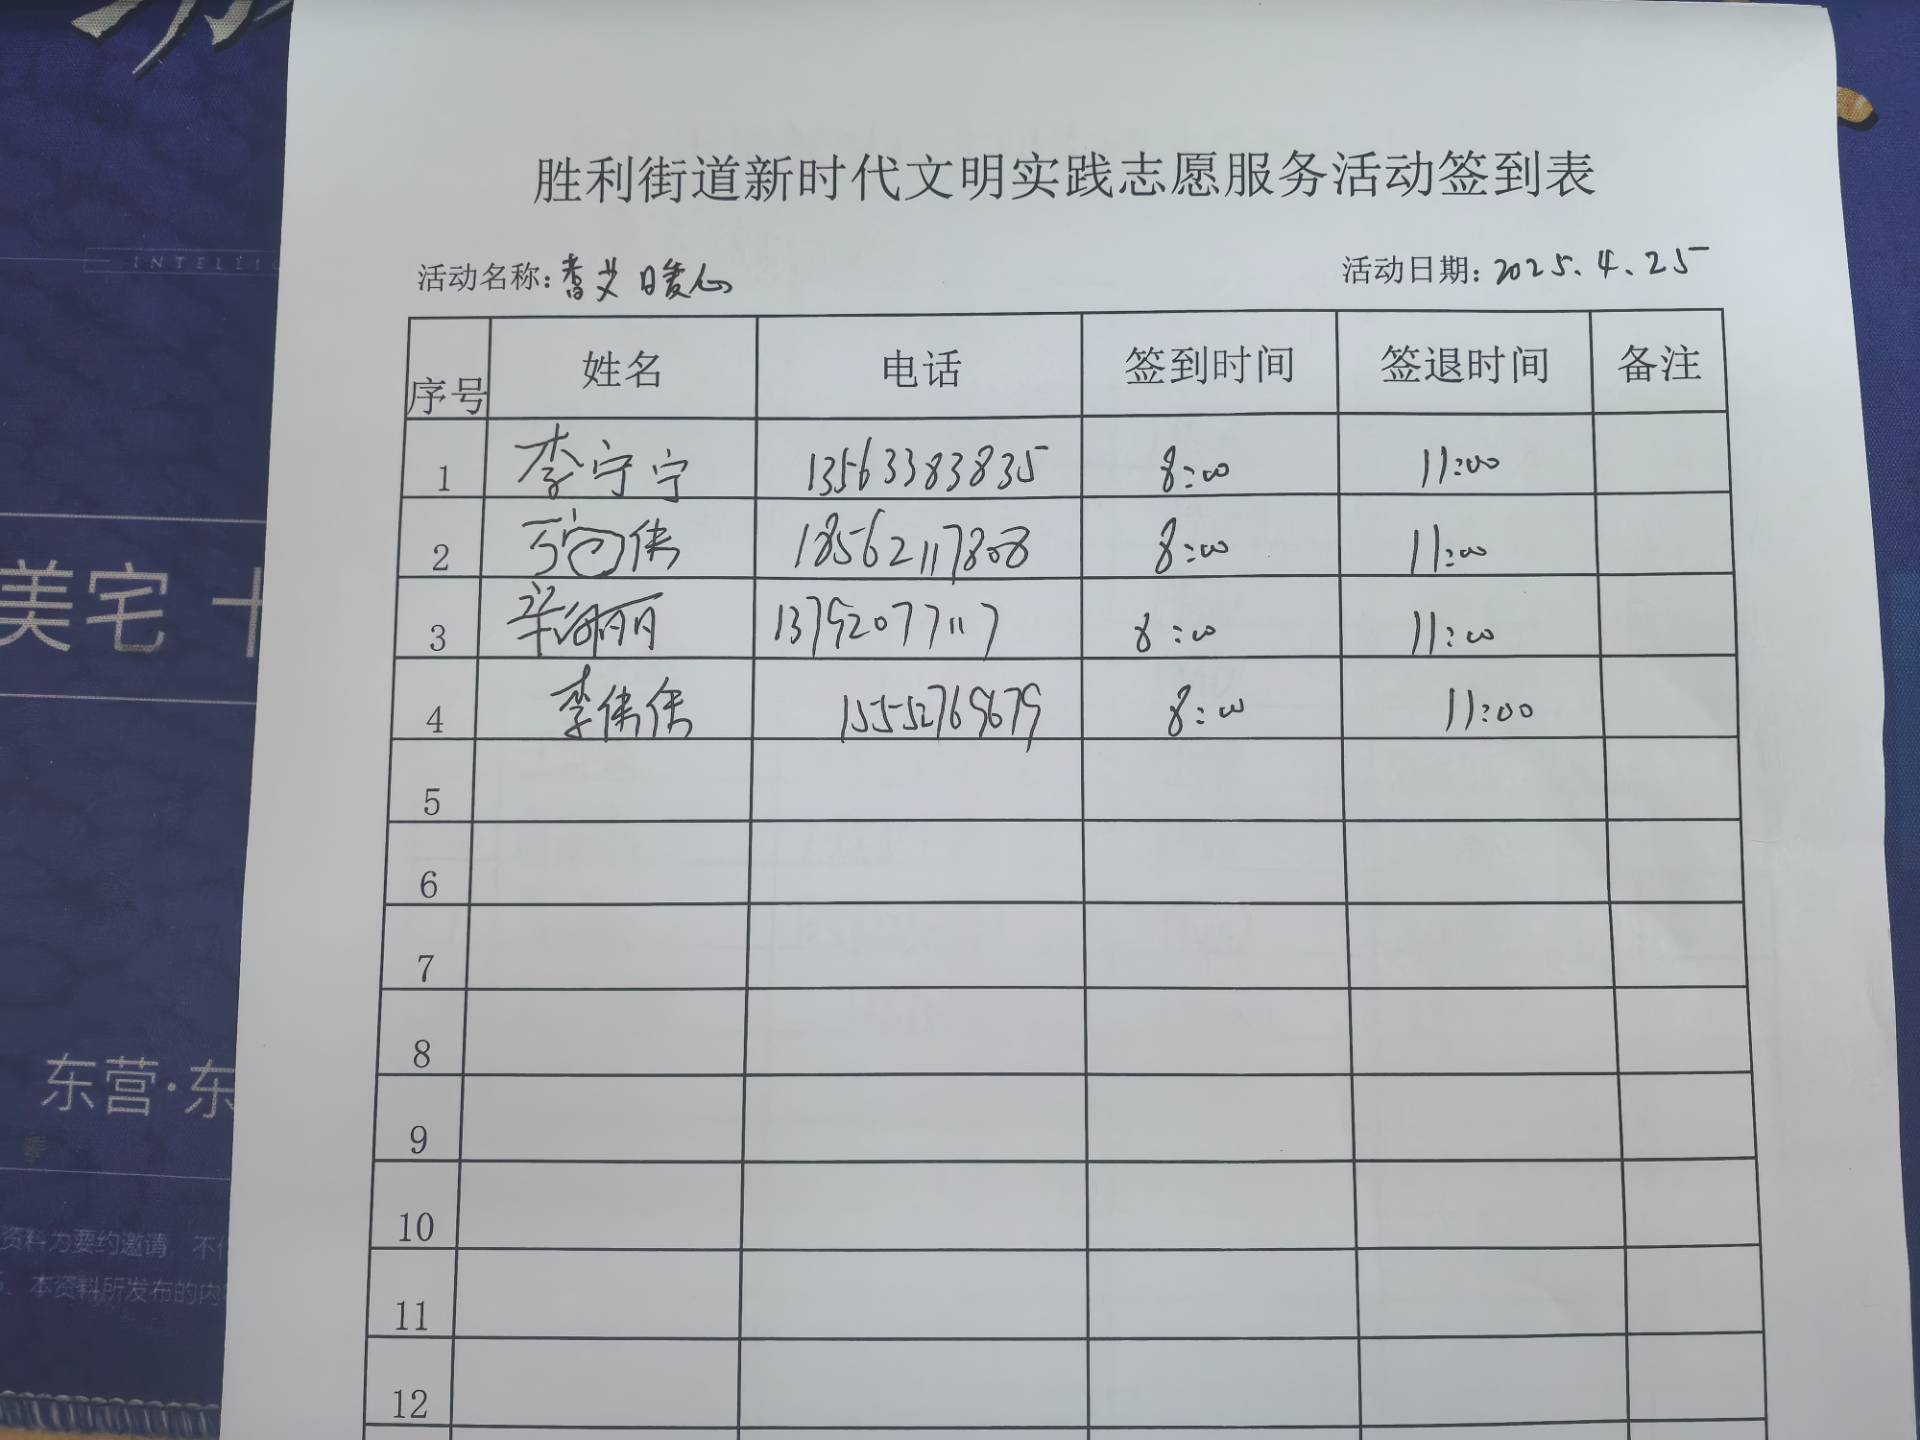 INTELLIG
胜利街道新时代文明实践志愿服务活动签到表
活动名称：香艾暖心 活动日期：2025.4.25
序号 姓名 电话 签到时间 签退时间 备注
1 李宁宁 13563383835 8:00 11:00
2 18562117808 8:00 11:00
3 丽 13792077117 8:00 11:00
4 李伟伟 15552769679 8:00 11:00
5
6
7
8
9
10
11
12
美宅
东营·东
资料为要约邀请，不
、本资料所发布的内